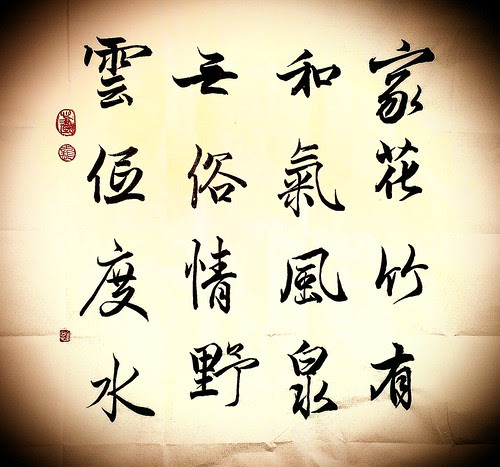 家花竹有
和氣風泉
无俗情野
雲仾度水